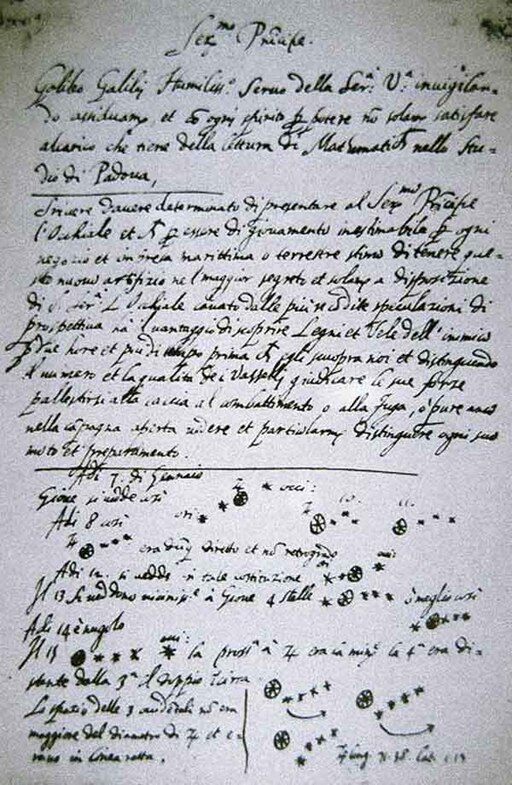 Ser.mo Principe.
Galileo Galilej Humiliss.o Servo della Ser.a V.a invigilan-
do assiduam.te et con ogni spirito p potere nō solam.te satisfare
alcarico che tiene della lettura di Mathematich nello Stu-
dio di Padova,
Scrivere davere determinato di presentare al Ser.mo Principe
l'Ochiale et p essere di giovamento inestimabile p ogni
negozio et impresa marittima o terrestre stimo di tenere que-
sto nuovo artifizio nel maggior segreto et solam a disposizione
di S. Ser.a L Ochiale cavato dalle più recōdite speculazioni di
prospettiva ha il vantaggio di scoprire Legni et Vele dell'inimico
p due hore et più di tempo prima egli scuopra noi et distinguendo
il numero et la qualità dei Vasselli giudicare le sue forze
pallestirsi alla caccia al combattimento o alla fuga, o pure anco
nella capagna aperta vedere et particolarmē distinguere ogni suo
moto et preparamento.
Adi 7. di Gennaio
Giove si vedde così occ:
Adi 8 così ori: 10. 11.
era dūq diretto et nō retrogrado
Adi 12. si vedde in tale costituzione occ:
Il 13 si veddono à Giove 4 stelle ò meglio così
Adi 14 è nugolo
Il 15 la pross.a à 4 era la mī.e la 4.a era di-
stante dalla 3.a il doppio
Lo spazio delle 3 nō era
maggiore del diametro di 4 et e-
rano in linea retta.
long. 71. 38 lat. 1. 13